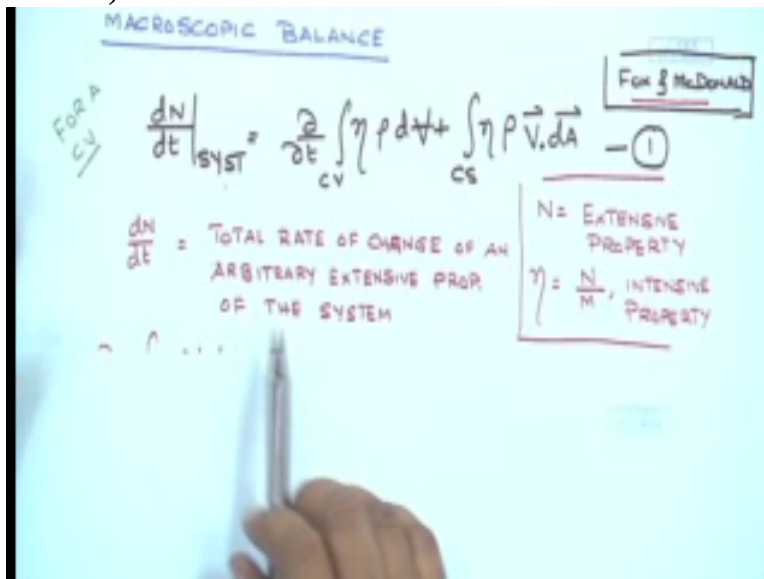 MACROSCOPIC BALANCE
FOX & McDONALD
FOR A
CV
dN/dt|SYST = ∂/∂t ∫CV η ρ dV + ∫CS η ρ V⃗. dA⃗ - ①
dN/dt = TOTAL RATE OF CHANGE OF AN
ARBITRARY EXTENSIVE PROP.
OF THE SYSTEM
N = EXTENSIVE
PROPERTY
η = N/M, INTENSIVE
PROPERTY